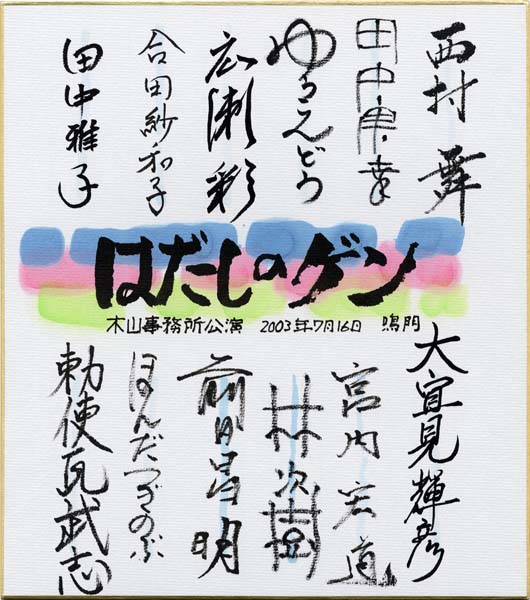 西村舞
田中実幸
ゆうえんどう
広瀬彩
合田紗和子
田中雅子
はだしのゲン
木山事務所公演 2003年7月16日 鳴門
大宜見輝彦
宮内宏道
林次樹
前田昌明
ほんだつぎのぶ
勅使瓦武志